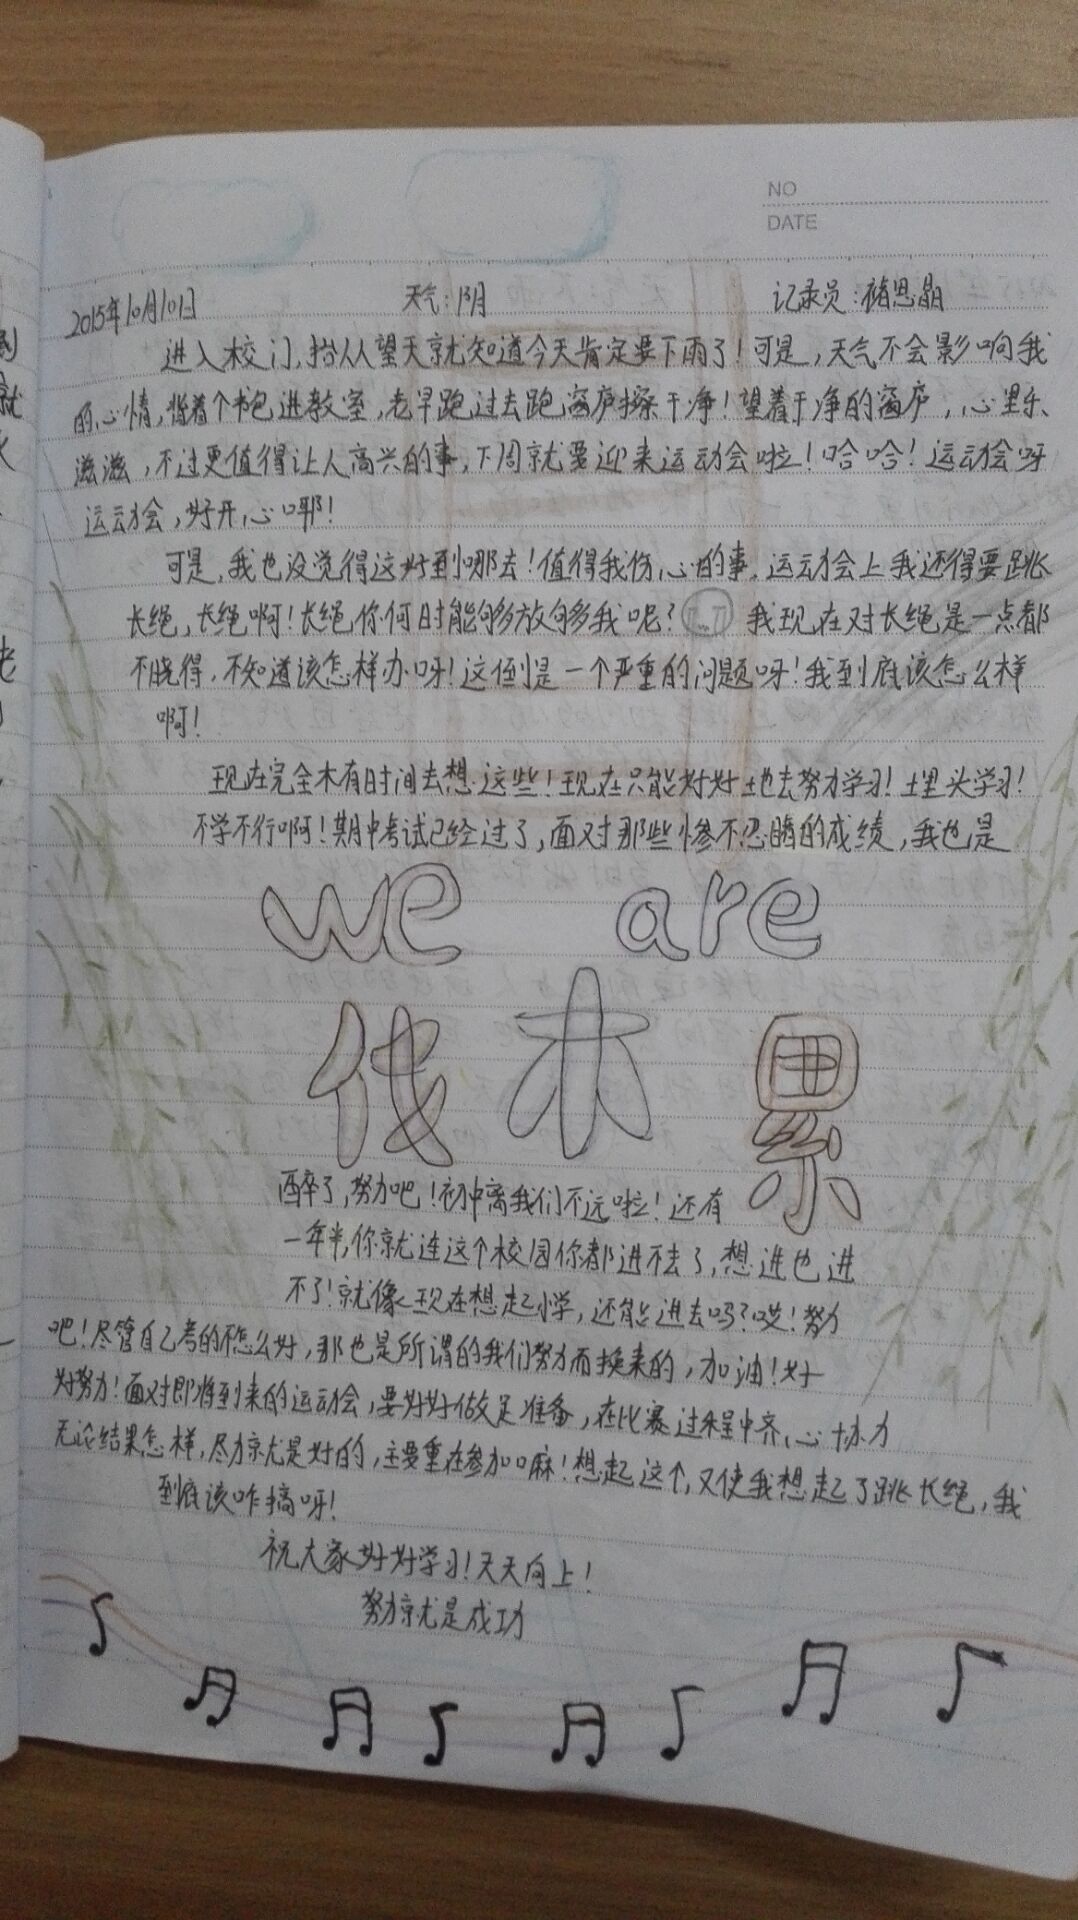 NO
DATE
2015年10月10日 天气：阴 记录员：储思晶
进入校门，抬从望天就知道今天肯定要下雨了！可是，天气不会影响我
的心情，背着个书包进教室，老早跑过去跑窗户擦干净！望着干净的窗户，心里乐
滋滋，不过更值得让人高兴的事，下周就要迎来运动会啦！哈哈！运动会呀
运动会，好开心耶！
可是，我也没觉得这好到哪去！值得我伤心的事，运动会上我还得要跳
长绳，长绳啊！长绳你何时能够放够我呢？ 我现在对长绳是一点都
不晓得，不知道该怎样办呀！这倒是一个严重的问题呀！我到底该怎么样
啊！
现在完全木有时间去想这些！现在只能好好地去努力学习！埋头学习！
不学不行啊！期中考试已经过了，面对那些惨不忍睹的成绩，我也是
we are
伐木累
醉了，努力吧！初中离我们不远啦！还有
一年半，你就连这个校园你都进不去了，想进也进
不了！就像现在想起小学，还能进去吗？哎！努力
吧！尽管自己考的不怎么好，那也是所谓的我们努力而换来的，加油！好
好努力！面对即将到来的运动会，要好好做足准备，在比赛过程中齐心协力
无论结果怎样，尽力就是好的，主要重在参加嘛！想起这个，又使我想起了跳长绳，我
到底该咋搞呀！
祝大家好好学习！天天向上！
努力就是成功